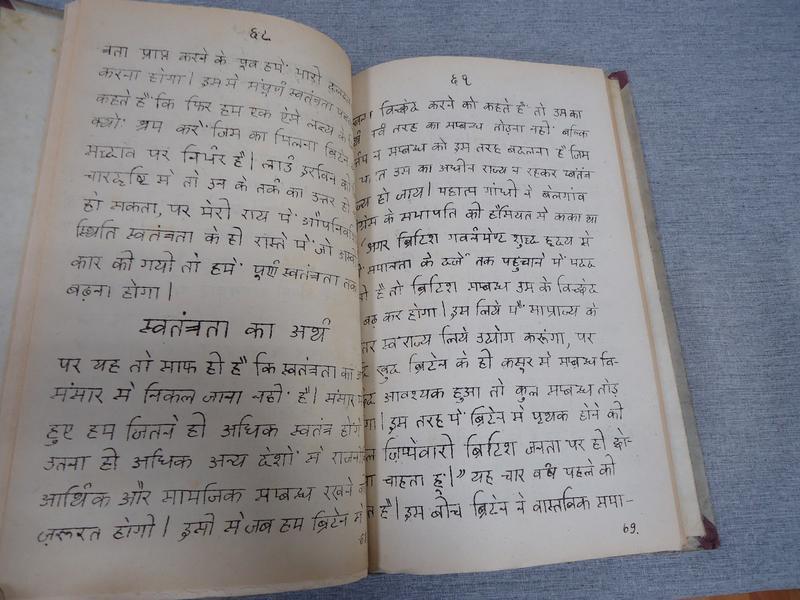 ६८
नता प्राप्त करने के पूर्व हमें भारी
करना होगा। इसमें संपूर्ण स्वतंत्रता
कहते हैं कि फिर हम एक ऐसे लक्ष्य के
क्यों श्रम करें जिस का मिलना ब्रिटेन
सद्भाव पर निर्भर है। लार्ड इरविन को
चारदृष्टि से तो इन के तर्क का उत्तर हो
हो सकता, पर मेरी राय में औपनिवे
स्थिति स्वतंत्रता के ही रास्ते में जो
कार की गयी तो हमें पूर्ण स्वतंत्रता तक
बढ़ना होगा।
स्वतंत्रता का अर्थ
पर यह तो साफ ही है कि स्वतंत्रता का
संसार से निकल जाना नहीं है। संसार में
हुए हम जितने ही अधिक स्वतंत्र होंगे
उतना ही अधिक अन्य देशों से राजनी
आर्थिक और सामजिक सम्बन्ध रखने की
ज़रूरत होगी। इसी से जब हम ब्रिटेन से
६९
विच्छेद करने को कहते हैं तो उसका
तरह का सम्बन्ध तोड़ना नहीं बल्कि
सम्बन्ध को इस तरह बदलना है जिस
उस का अधीन राज्य न रहकर स्वतंत्र
हो जाय। महात्म गांधी ने बेलगांव
के सभापति की हैसियत से कहा था
"अगर ब्रिटिश गवर्नमेण्ट शुद्ध हृदय से
समानता के दर्जे तक पहुंचाने में मदद
है तो ब्रिटिश सम्बन्ध उस के विच्छेद
बढ़ कर होगा। इस लिये मैं साम्राज्य के
स्वराज्य लिये उद्योग करूंगा, पर
खुद ब्रिटेन के ही कसूर से सम्बन्ध वि-
आवश्यक हुआ तो कुल सम्बन्ध तोड़
इस तरह मैं ब्रिटेन से पृथक होने की
ज़िम्मेवारी ब्रिटिश जनता पर ही छो-
चाहता हूं।" यह चार वर्ष पहले की
है। इस बीच ब्रिटेन ने वास्तविक समा-
69.